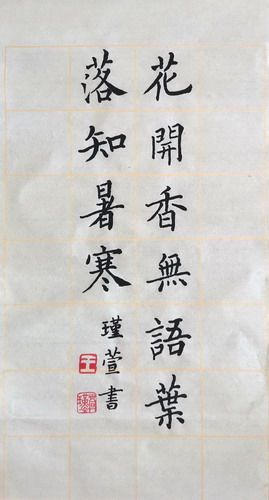 花開香無語葉
落知暑寒
瑾萱書
王